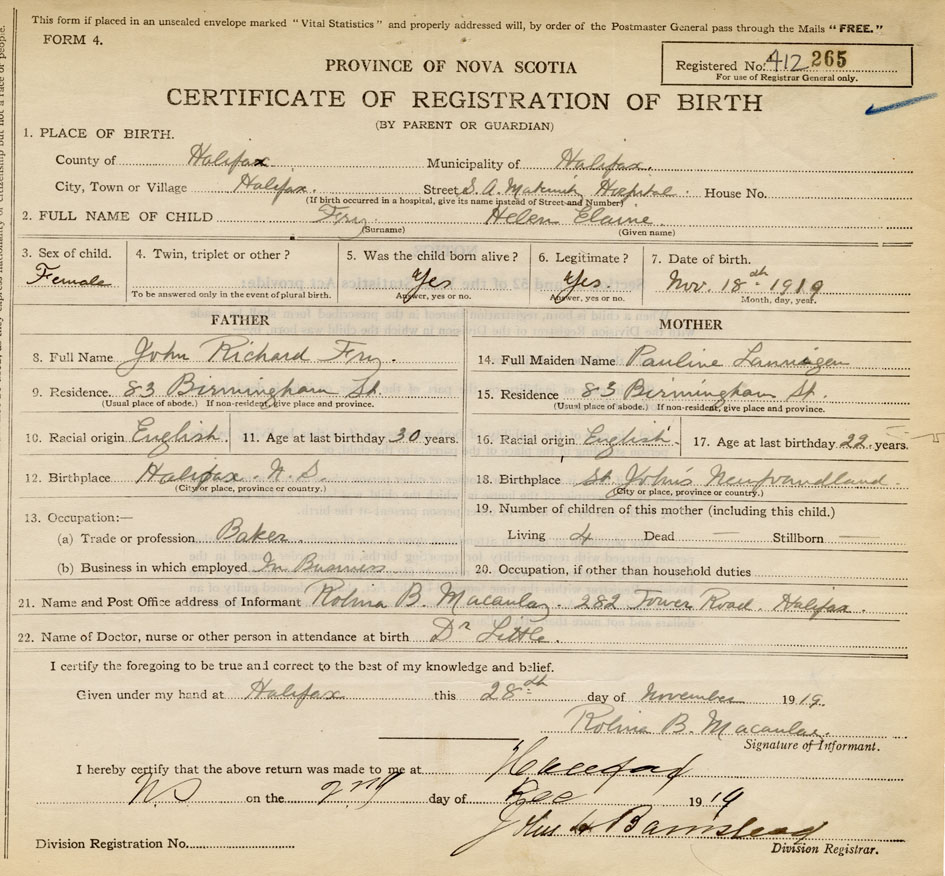 This form if placed in an unsealed envelope marked "Vital Statistics" and properly addressed will, by order of the Postmaster General pass through the Mails "FREE."
FORM 4.
Registered No. 412 265
For use of Registrar General only.
PROVINCE OF NOVA SCOTIA
CERTIFICATE OF REGISTRATION OF BIRTH
(BY PARENT OR GUARDIAN)
1. PLACE OF BIRTH.
County of Halifax Municipality of Halifax.
City, Town or Village Halifax. Street S. A. Maternity Hospital. House No.
(If birth occurred in a hospital, give its name instead of Street and Number)
2. FULL NAME OF CHILD Fry Helen Elaine.
(Surname) (Given name)
3. Sex of child. 4. Twin, triplet or other? 5. Was the child born alive? 6. Legitimate? 7. Date of birth.
Female Yes Yes Nov. 18th 1919
To be answered only in the event of plural birth. Answer, yes or no. Answer, yes or no. Month, day, year.
FATHER MOTHER
8. Full Name John Richard Fry. 14. Full Maiden Name Pauline
9. Residence 83 Birmingham St. 15. Residence 83 Birmingham St.
(Usual place of abode.) If non-resident, give place and province. (Usual place of abode.) If non-resident, give place and province.
10. Racial origin English. 11. Age at last birthday 30 years. 16. Racial origin English. 17. Age at last birthday 22 years.
12. Birthplace Halifax. N. S. 18. Birthplace St. John's Newfoundland.
(City or place, province or country.) (City or place, province or country.)
13. Occupation:— 19. Number of children of this mother (including this child.)
(a) Trade or profession Baker. Living 4 Dead — Stillborn —
(b) Business in which employed In Business 20. Occupation, if other than household duties
21. Name and Post Office address of Informant Rolina B. Macaulay. 282 Tower Road. Halifax.
22. Name of Doctor, nurse or other person in attendance at birth Dr Little.
I certify the foregoing to be true and correct to the best of my knowledge and belief.
Given under my hand at Halifax this 28th day of November 1919.
Rolina B. Macaulay.
Signature of Informant.
I hereby certify that the above return was made to me at Halifax
NS on the 2nd day of Dec 1919
Division Registration No. John Barnstead
Division Registrar.